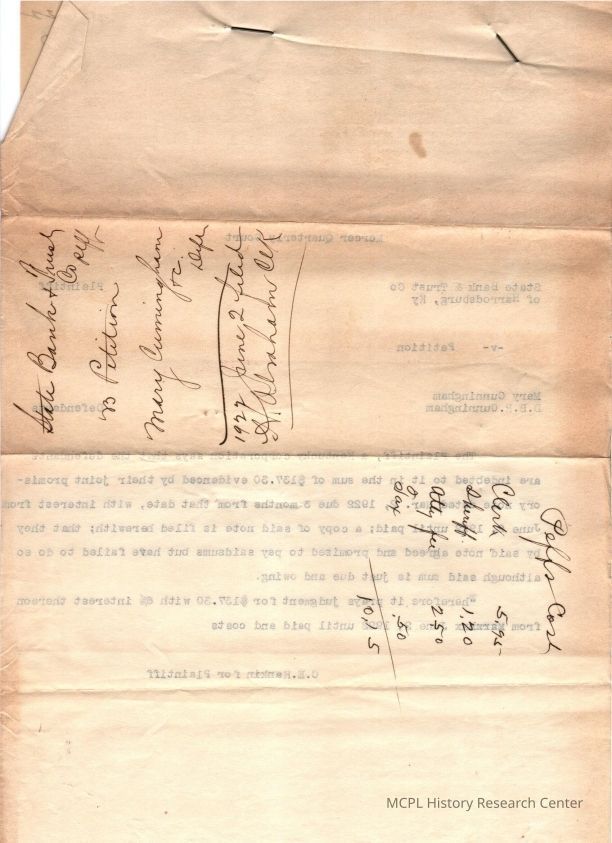 State Bank & Trust
Co Plff
vs Petition
Mary Cunningham
&c. Defts
1922 June 2 filed
Abraham Clk
Plffs Cost
Clerk 5.95
Sheriff 1.20
Atty fee 2.50
.50
10.15
Mercer Quarterly Court
State bank & Trust Co
of Harrodsburg, Ky, Plaintiff
-v- Petition
Mary Cunningham
D.P.P. Cunningham Defendants
The Plaintiff, a Kentucky corporation says that the defendants
are indebted to it in the sum of $137.30 evidenced by their joint promis-
ory note 1922 due 3 months from that date, with interest from
June until paid; a copy of said note is filed herewith; that they
by said note agreed and promised to pay saidsums but have failed to do so
although said sum is just due and owing.
"herefore it prays judgment for $137.30 with 6% interest thereon
from June until paid and costs
C.E. Rankin for Plaintiff
MCPL History Research Center